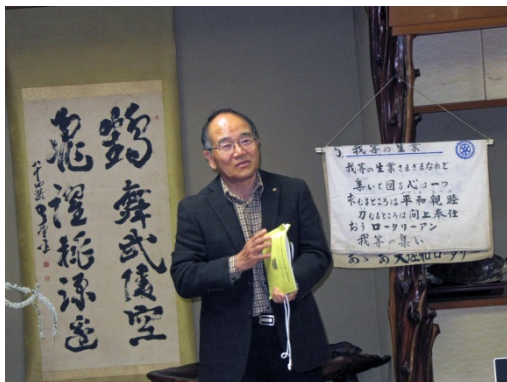 鶴舞武陵空
龍躍桃源
5. 我等の生業
我等の生業さまざまなれど
集いて図る心は一つ
求むるところは平和親睦
力むるところは向上奉仕
おうロータリーアン
我等の集い
大佐和ロータリー